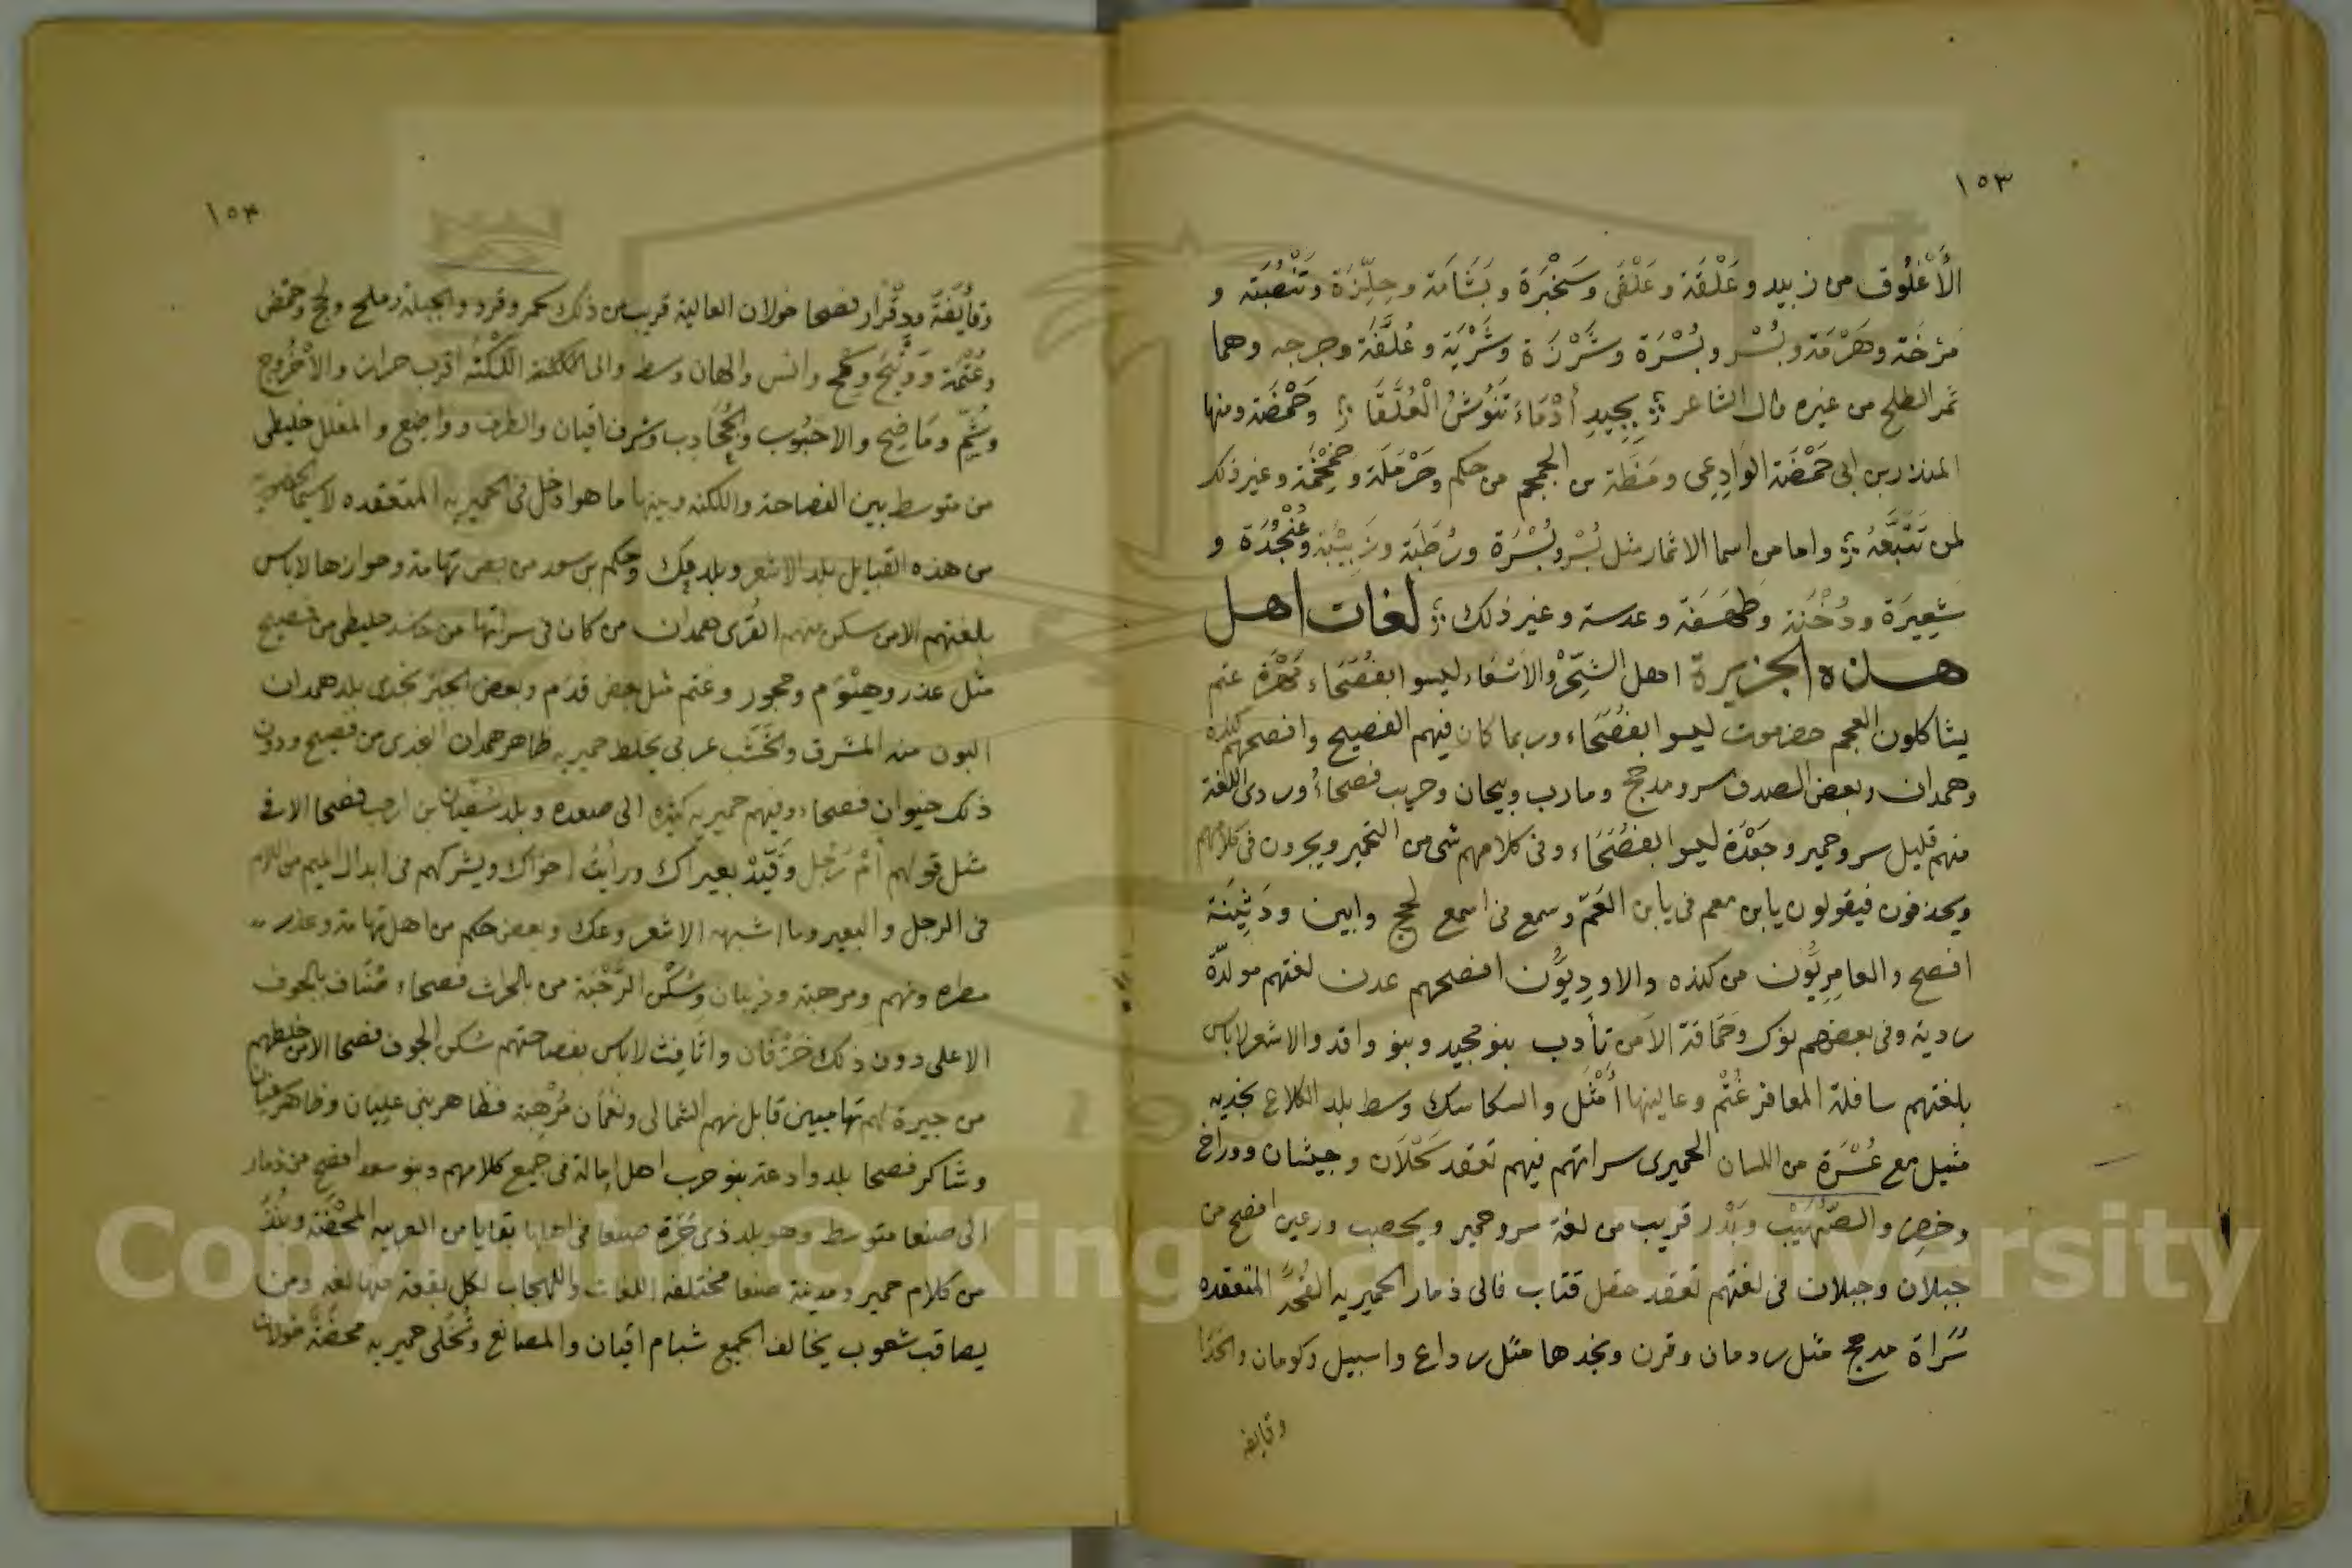 ١٥٣
الأُعْلُوق من زبيد وعَلْقَة وعَلْقَى وسَخْبَرَة وبَشَامَة وحِلِّزَة وتَنْضُبَة و
مَرْخَة وهَرْمَة وبُسْر وبُسْرَة وشَرْزَة وشَرْيَة وعُلَّفَة وجرجه وهما
ثمر الطلح من غيره قال الشاعر بِجِيدِ أَدْمَاءَ تَنُوشُ الْعُلَّفَا وحَمْضَة ومنها
المنذر بن ابى حَمْضَة الوَادِعِى ومَظَة من الجمجم من حكم وحَرْمَلَة وخِمْخِمَة وغير ذلك
لمن تَتَبَّعَهُ واما من اسما الاثمار مثل بُسْر وبُسْرَة ورُطَبَة وزَبِيْبَة وعُنْجُدَة و
شعِيرَة ودُخْنَة وطَهَفَة وعدسة وغير ذلك لغات اهل
هذه الجزيرة اهل الشِّحْر والاَسْعَاء ليسوا بفُصَحَاء مَهْرَة غتم
يشاكلون العجم حضرموت ليسوا بفُصَحَاء وربما كان فيهم الفصيح وافصحهم كنده
وهمدان وبعض الصدف سرو مذحج ومارب وبيحان وحريب فصحاءُ وردى اللغة
منهم قليل سرو حمير وجَعْدَة ليسوا بفُصَحَاء وفى كلامهم شى من التحمير ويجرون فى كلامهم
ويحذفون فيقولون يابن معم فى يابن العَمّ وسمع فى اسمع لحج وابين ودَثِينَة
افصح والعامِرِيُّون من كنده والاودِيُّون افصحهم عدن لغتهم مولدّة
ردية وفى بعضهم نوك وحَمَاقَة الاَمن تأدب بنو مجيد وبنو واقد والاشعر لاباس
بلغتهم سافلة المعافر غُتْم وعاليتها اَمْثَل والسكاسك وسط بلد الكلاع نجديه
مثيل مع عُسْرَة من اللسان الحميرى سراتهم فيهم تعقد كَحْلاَن وجيشان ووراخ
وحضر والصُّهَيْب وبَدْر قريب من لغة سرو حمير ويحصب ورعين افصح من
جبلان وجبلان فى لغتهم تعقد حقل قتاب فالى ذمار الحميريه القُحَّة المتعقده
سَرَاة مدحج مثل ردمان وقرن ونجدها مثل رداع واسبيل وكومان والحَدَا
وقايفه
١٥٤
وقَايْفَة ودقْرار فصحا خولان العالية قريب من ذلك سحمر وقرد والجبلة وملح ولحج وحمض
وعُتْمَة ووَتْيَح وسمح وانس والهان وسط والى اللُكْنَة اقرب حراز والاُخْرُوج
وشُمّ ومَاضِخ والاحبُوب والجُحَادِب وشرف اقيان والطرف وواضع والمعلل خليطى
من متوسط بين الفصاحة واللكنه وبينها ما هو ادخل فى الحميريه المتعقده لاسيما الحضوريه
من هذه القبايل بلد الاشعر وبلد عك وحكم بن سعد من بعض تهامة وحوازها لاباس
بلغتهم الامن سكن منهم القرى همدان من كان فى سراتها من حاشد خليطى من فصيح
مثل عذر وهِنْوَم وحجور وغتم مثل بعض قُدَم وبعض الجَبَر نجدى بلد همدان
البون منه المشرق والخَشَب عربى يخلط حميريه ظاهر همدان النجدى من فصيح ودون
ذلك خيوان فصحاء وفيهم حميريه كثيره الى صعده وبلد سُفْيان بن ارحب فصحا الا فى
مثل قولهم أمْ رَجُل وقَيِّدْ بعيراك ورأيتُ اخواك ويشركهم فى ابدال الميم من اللام
فى الرجل والبعير وما اشبهه الاشعر وعك وبعض حكم من اهل تهامة وعذر
مطره ونهم ومرهبة وذيبان وسُكْن الرَّحْبَة من بالحرث فصحاء خُتَاف بالجوف
الاعلى دون ذلك خَرْفَان واثَافِت لاباس بفصاحتهم سُكن الجوف فصحا الا من خلطهم
من جيرة لهم تهاميين قابل نهم الشمالى ونعمَان مُرْهِبة فظاهر بنى عليان وظاهر سفيان
وشاكر فصحا بلد وادعة بنو حرب اهل اِمالة فى جميع كلامهم وبنو سعد افصح من ذمار
الى صنعا متوسط وهو بلد ذى جُرَة صنعا فى اهلها بقايا من العربيه المَحْضَة ونُبَذٌ
من كلام حمير ومدينة صنعا مختلفه اللغات واللهجات لكل بقعة منها لغه ومن
يصاقب شعوب يخالف الجميع شبام اقيان والمصانع وتُخْلَى حميريه محضَة خولان